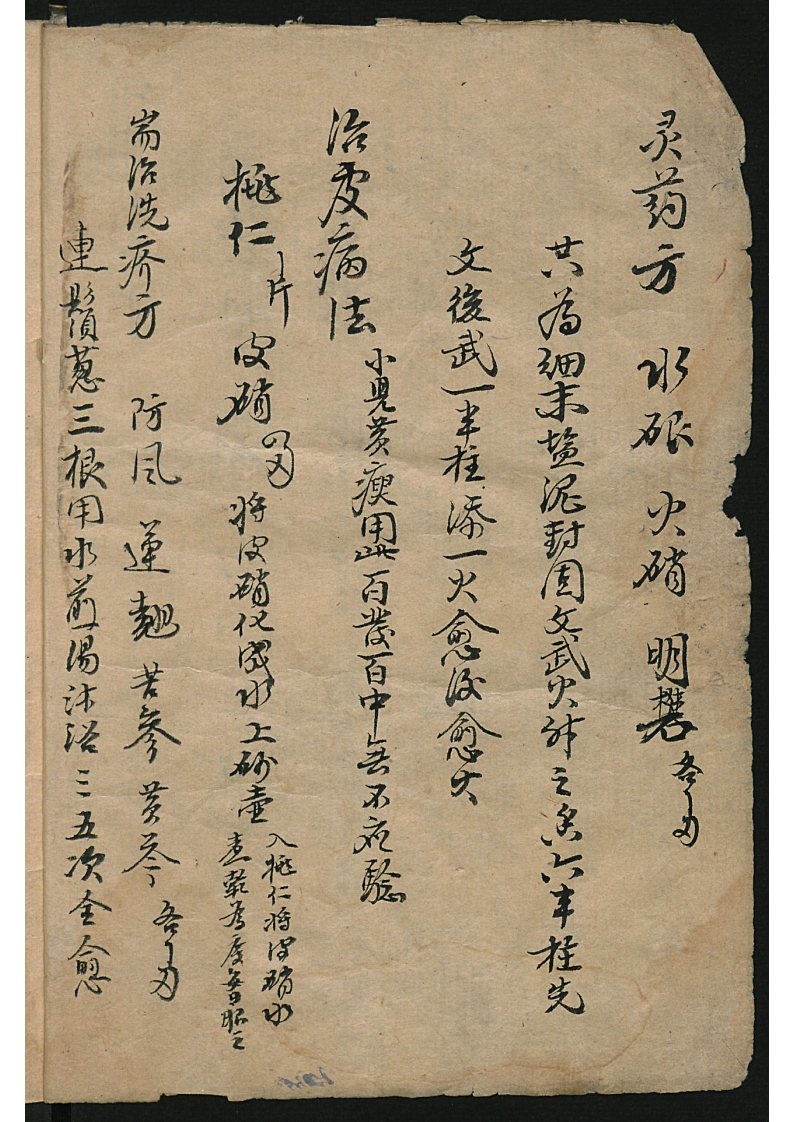 灵药方 水银 火硝 明礬 各一两
共為細末塩泥封固文武火升之 六 柱先
文後武一半柱添一火愈後愈大
治皮病法 小児黄瘦用此百發百中無不应驗
桃仁 片 皮硝 四两 将皮硝化成水上砂壶
入桃仁将皮硝水
煮乾為度每日服之
耑治洗疥方 防风 連翹 苦參 黄芩 各一两
連鬚葱三根用水煎湯沐浴三五次全愈